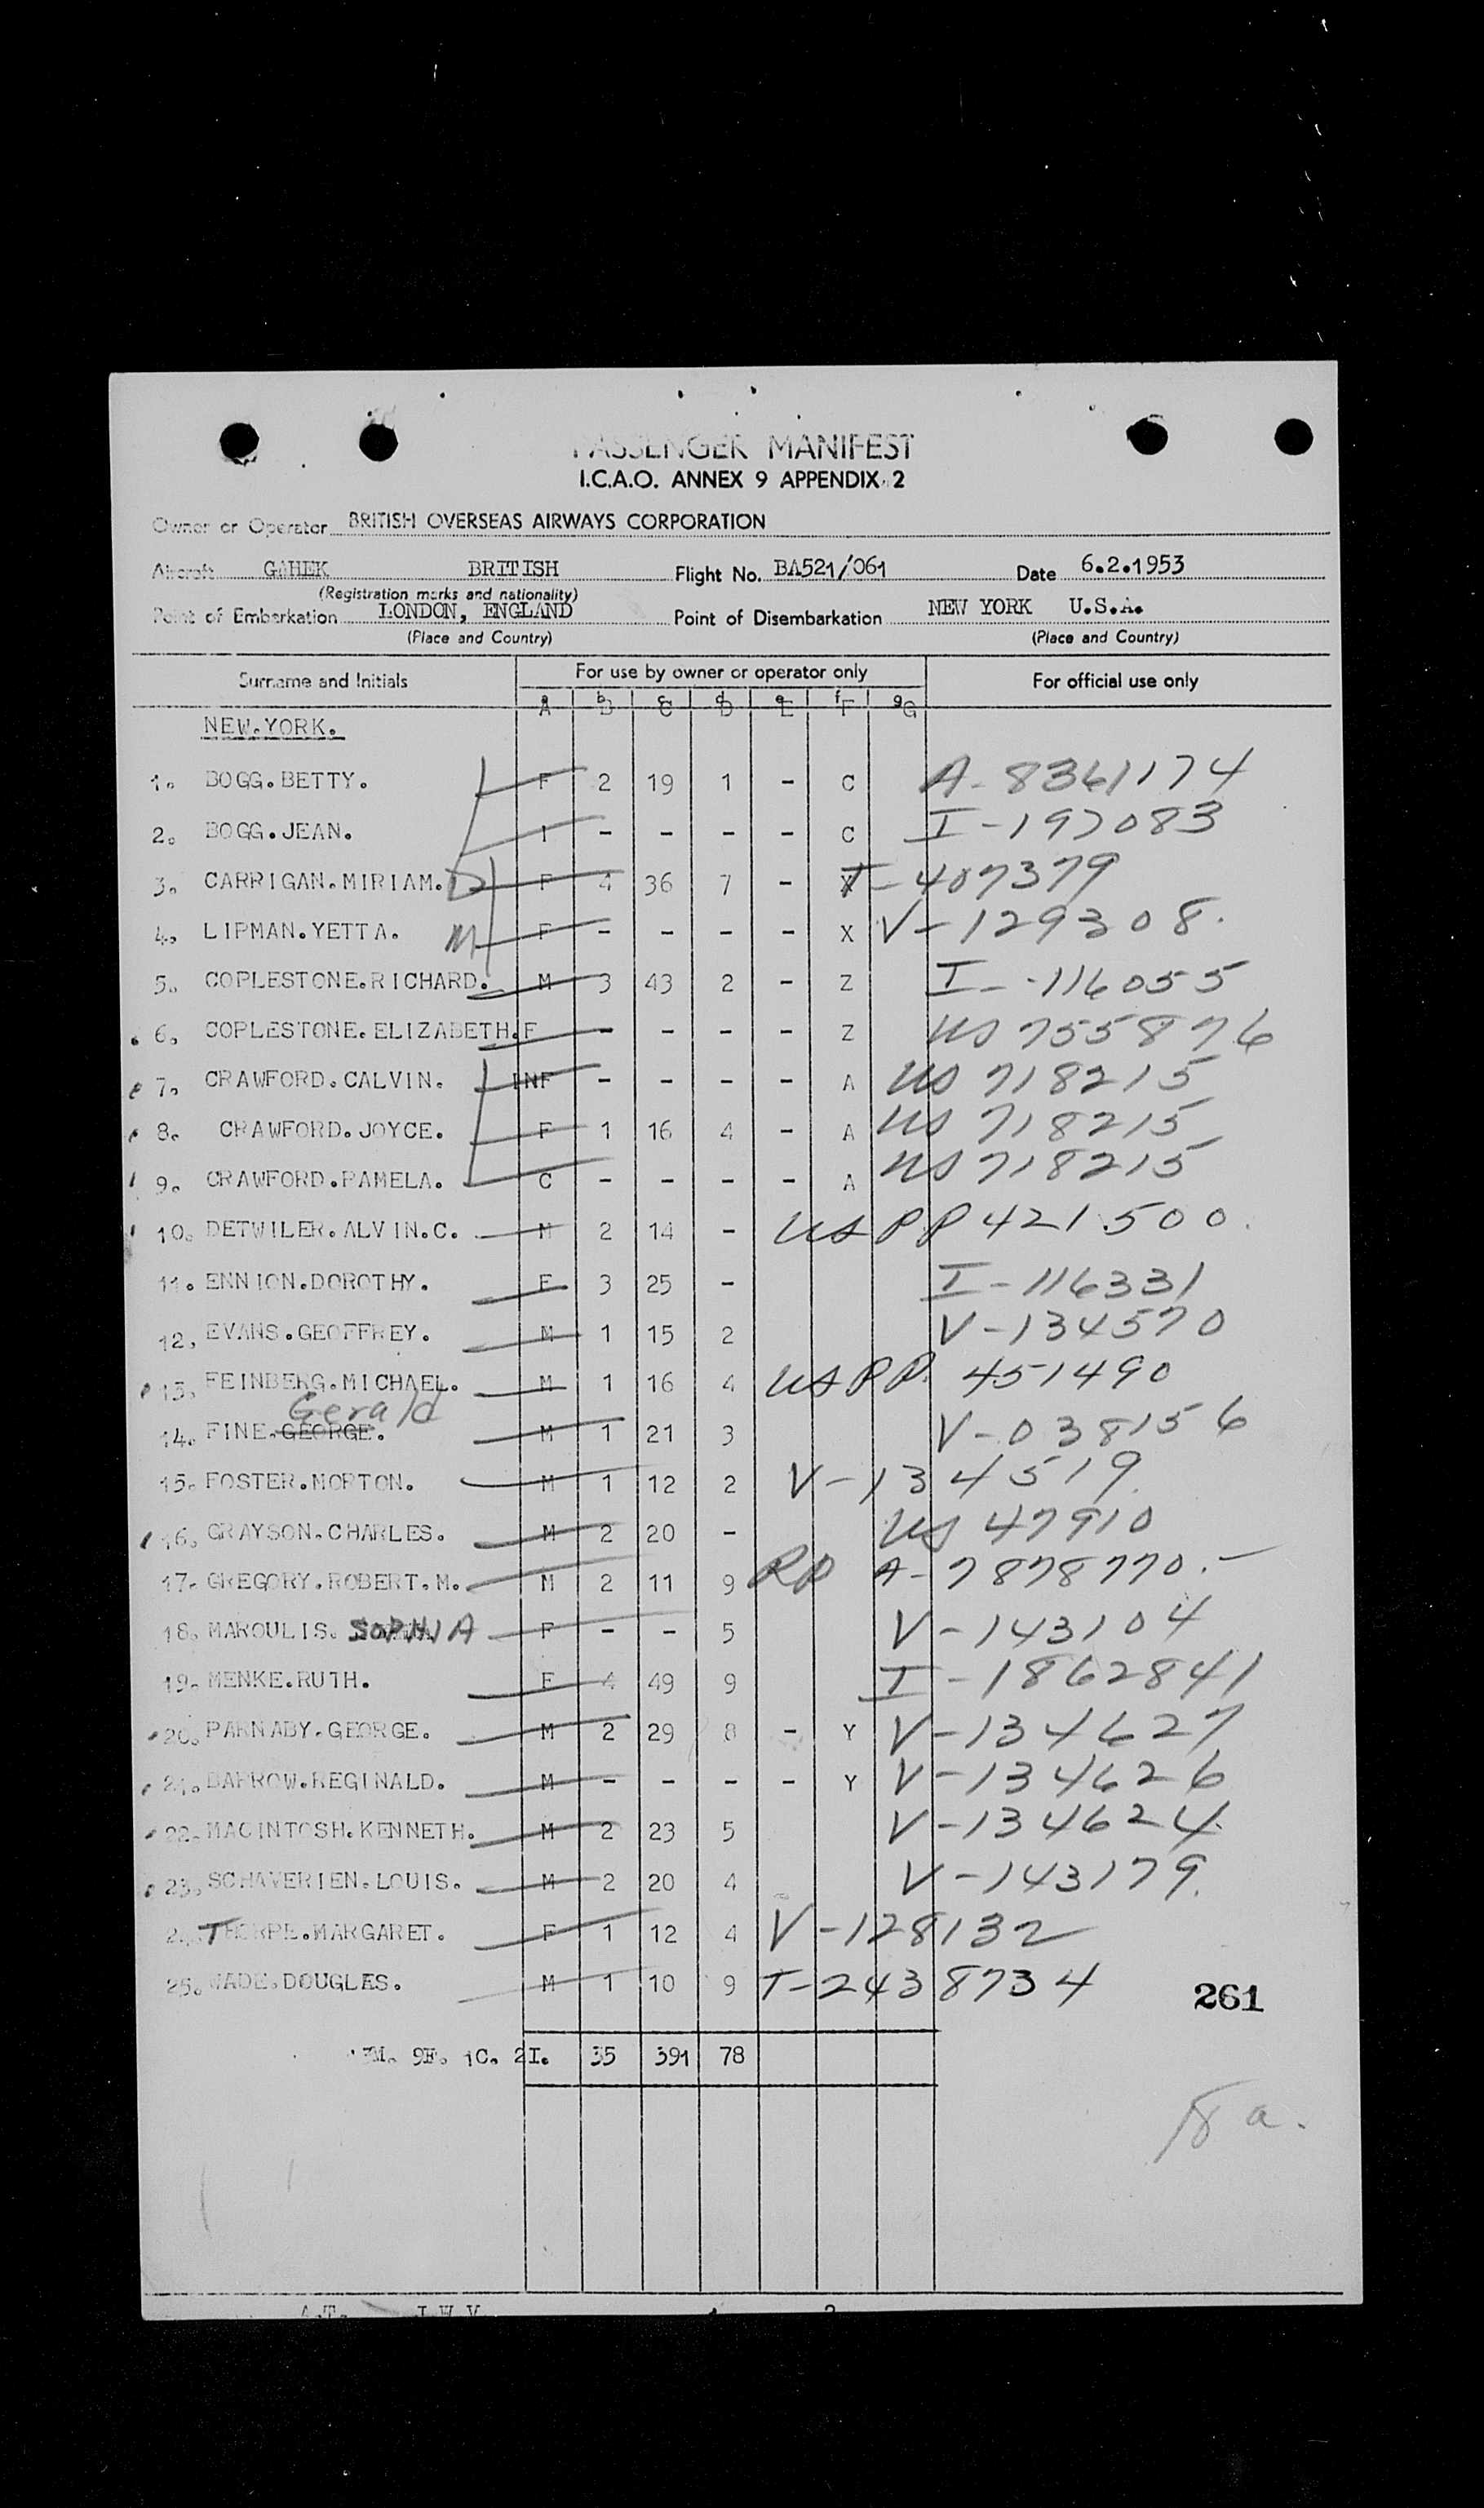 PASSENGER MANIFEST
I.C.A.O. ANNEX 9 APPENDIX 2
Owner or Operator BRITISH OVERSEAS AIRWAYS CORPORATION
Aircraft GAHEK BRITISH Flight No. BA521/061 Date 6.2.1953
(Registration marks and nationality)
Point of Embarkation LONDON, ENGLAND Point of Disembarkation NEW YORK U.S.A.
(Place and Country) (Place and Country)
Surname and Initials For use by owner or operator only For official use only
a b c d e f g
A B C D E F G
NEW.YORK.
1. BOGG.BETTY. F 2 19 1 - C A-8361174
2. BOGG.JEAN. I - - - - C I-197083
3. CARRIGAN.MIRIAM. F 4 36 7 - X I-407379
4. LIPMAN.YETTA. M F - - - - X V-129308.
5. COPLESTONE.RICHARD. M 3 43 2 - Z I-116055
6. COPLESTONE.ELIZABETH.F - - - - Z US 755876
7. CRAWFORD.CALVIN. INF - - - - A US 718215
8. CRAWFORD.JOYCE. F 1 16 4 - A US 718215
9. CRAWFORD.PAMELA. C - - - - A US 718215
10. DETWILER.ALVIN.C. M 2 14 - US PP 421500.
11. ENNION.DOROTHY. F 3 25 - I-116331
12. EVANS.GEOFFREY. M 1 15 2 V-134570
13. FEINBERG.MICHAEL. M 1 16 4 US PP. 451490
Gerald
14. FINE.GEORGE. M 1 21 3 V-038156
15. FOSTER.MORTON. M 1 12 2 V-134519.
16. GRAYSON.CHARLES. M 2 20 - US 47910
17. GREGORY.ROBERT.M. M 2 11 9 RP A-7878770.-
18. MAROULIS. SOPHIA F - - 5 V-143104
19. MENKE.RUTH. F 4 49 9 I-1862841
20. PARNABY.GEORGE. M 2 29 8 - Y V-134627
21. BARROW.REGINALD. M - - - - Y V-134626
22. MACINTOSH.KENNETH. M 2 23 5 V-134624
23. SCHAVERIEN.LOUIS. M 2 20 4 V-143179.
24. THORPE.MARGARET. F 1 12 4 V-128132
25. WADE.DOUGLAS. M 1 10 9 T-2438734
261
13M. 9F. 1C. 2I. 35 391 78
8 a.